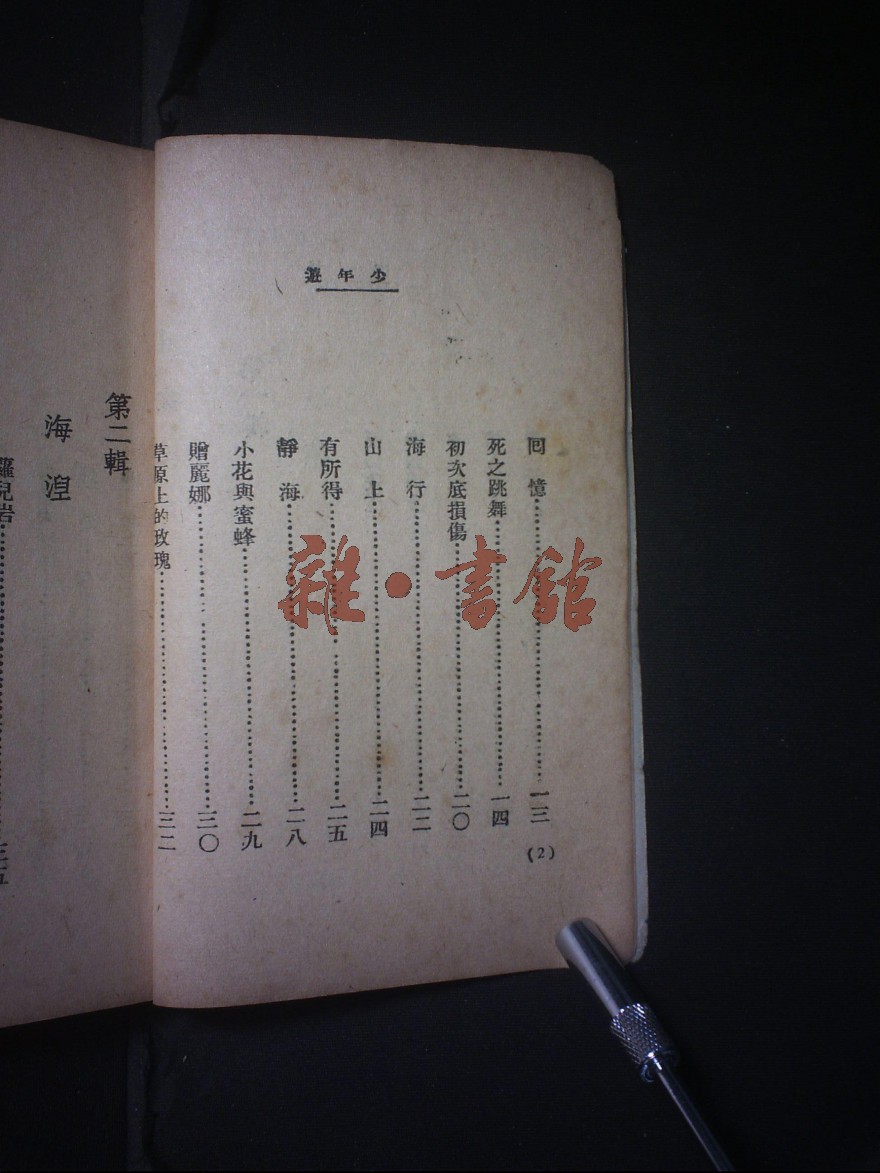 少年遊
回憶……一三
死之跳舞……一四
初次底損傷……二〇
海行……二二
山上……二四
有所得……二五
靜海……二八
小花與蜜蜂……二九
贈麗娜……三〇
草原上的玫瑰……三二
(2)
第二輯
海湼
羅兒岩……三五
雜·書館